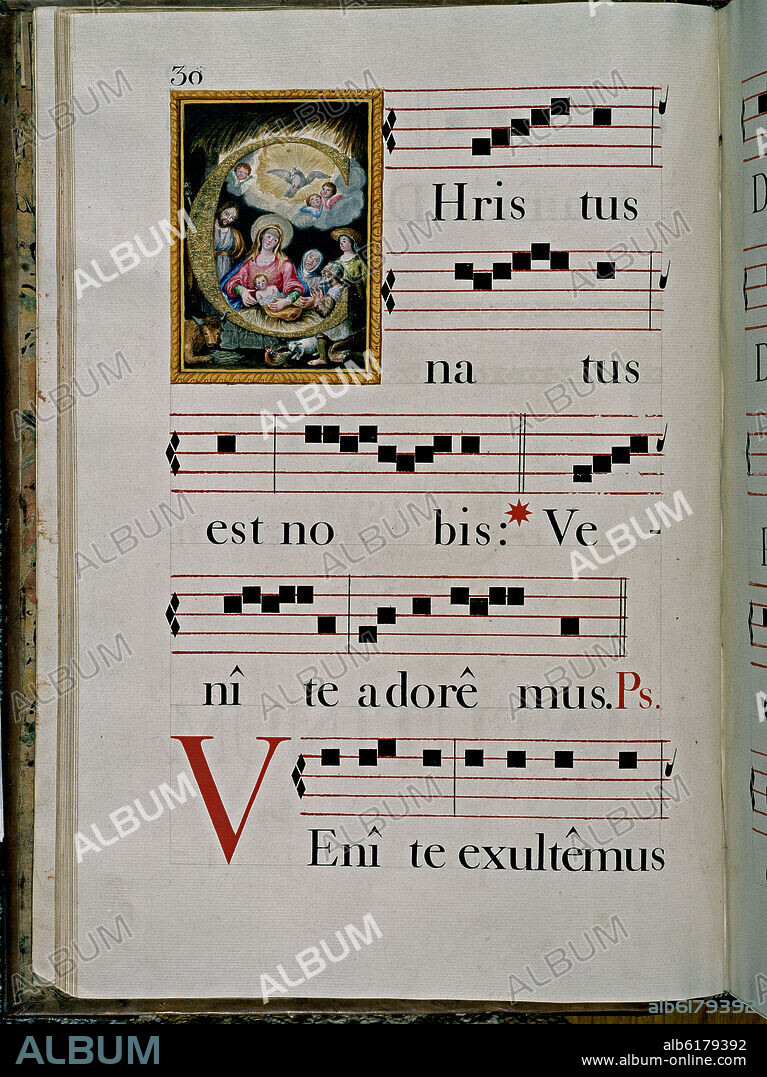 30
CHris tus
na tus
est no bis: Ve -
nî te adorê mus. Ps.
VEnî te exultêmus
D
D
ALBUM
alb6179392
ALBUM
alb6179392
www.album-online.com